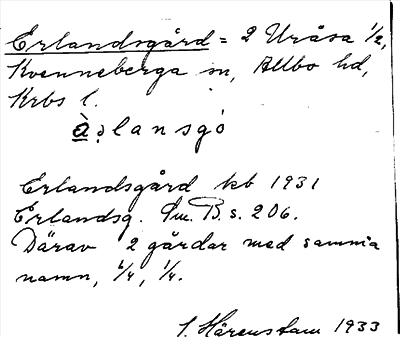 Erlandsgård = 2 Uråsa 1/2,
Kvenneberga sn, Allbo hd,
Krbs l.
à̱ḷlansgó
Erlandsgård kb 1931
Erlandsg. Sm. B. s. 206.
Därav 2 gårdar med samma
namn, 1/4, 1/4.
S. Härenstam 1933